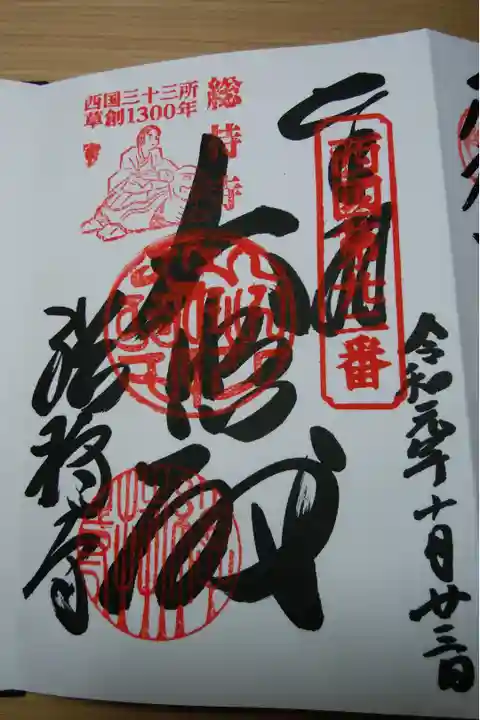 令和元年十月廿三日
西國第廿二番
大悲殿
総持寺
西国三十三所
草創1300年
総持寺